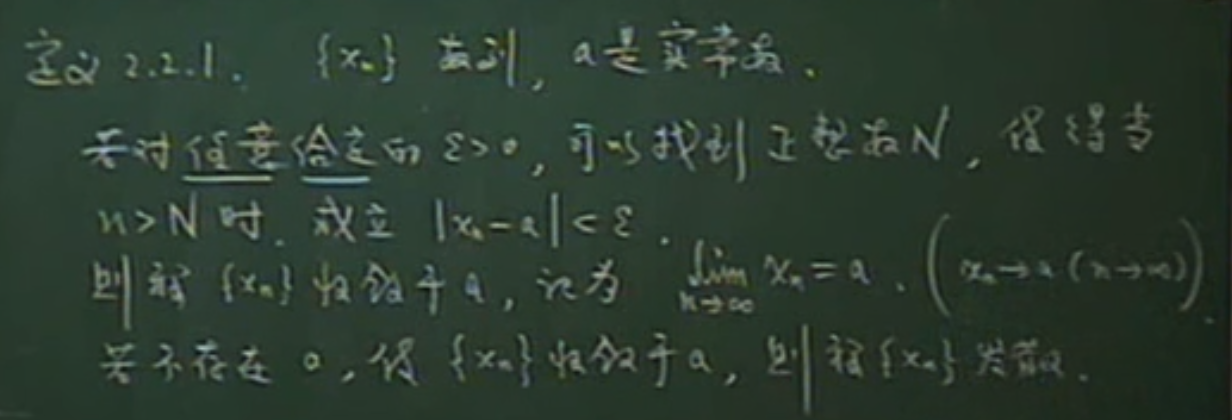 定义 2.2.1. {xₙ} 数列, a是实常数.
若对任意给定的 ε>0, 可以找到正整数N, 使得当
n>N时. 成立 |xₙ-a|<ε.
则称 {xₙ} 收敛于a, 记为 lim_{n→∞} xₙ=a. (xₙ→a (n→∞))
若不存在 a, 使 {xₙ} 收敛于a, 则称{xₙ}发散.